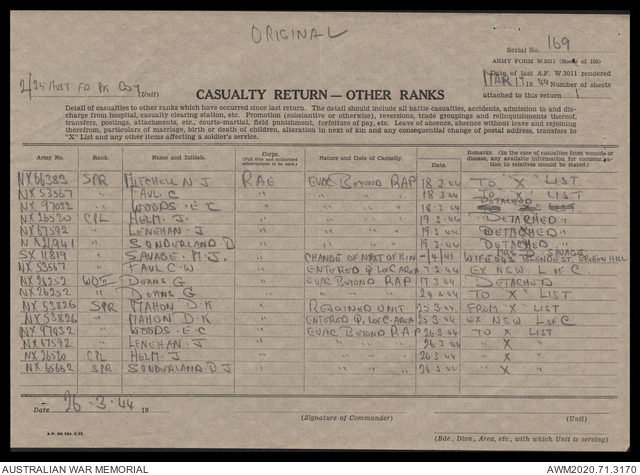 ORIGINAL
Serial No. 169
ARMY FORM W.3011 (Books of 100)
2/2 Aust Fd Pk Coy (Unit)
Date of last A.F. W.3011 rendered
MAR 17 1944 Number of sheets
attached to this return 1
CASUALTY RETURN — OTHER RANKS
Detail of casualties to other ranks which have occurred since last return. The detail should include all battle casualties, accidents, admission to and discharge from hospital, casualty clearing station, etc. Promotion (substantive or otherwise), reversions, trade groupings and relinquishments thereof,
transfers, postings, attachments, etc., courts-martial, field punishment, forfeiture of pay, etc. Leave of absence, absence without leave and rejoining
therefrom, particulars of marriage, birth or death of children, alteration in next of kin and any consequential change of postal address, transfers to
"X" List and any other items affecting a soldier's service.
Army No. Rank. Name and Initials. Corps. Nature and Date of Casualty. Date. Remarks. (In the case of wounds or disease, any available information for communication to relatives should be stated.)
NX66383 SPR MITCHELL N.J RAE EVAC BEYOND RAP 18.3.44 TO "X" LIST
NX53567 " PAUL C " " " " 18.3.44 TO "X" LIST
NX97032 " WOODS. E C " " " " 18.3.44 DETACHED
NX26520 CPL HELM. J. " " " " 19.3.44 "DETACHED"
NX67592 " LENEHAN. J " " " " 19.3.44 DETACHED
" SONDERLAND D " " " " 19.3.44 DETACHED
SX11819 " SAVAGE. M.J. " CHANGE OF NEXT OF KIN -.4.41 WIFE MRS D SAVAGE BROKEN HILL
NX53567 " PAUL C.W " ENTERED Q L OF C AREA 7.2.44 EX NSW. L of C
NX26252 WO II DOHNS G " EVAC BEYOND RAP 17.3.44 DETACHED
NX26252 " DOHNS G " " " " 24.3.44 TO "X" LIST
NX53826 SPR MAHON D K " REJOINED UNIT 25.3.44 FROM "X" LIST
NX53826 " MAHON D K " ENTERED Q. L of C. AREA 25.3.44 EX NSW L of C
NX97032 " WOODS. E C " EVAC BEYOND RAP 26.3.44 TO X LIST
NX67592 " LENEHAN. J " " " " 26.3.44 " X "
NX26520 CPL HELM. J " " " " 26.3.44 " X "
NX65662 SPR SONDERLAND. D J " " " " 26.3.44 " X "
Date 26-3-44 19
(Signature of Commander)
(Unit)
(Bde., Divn., Area, etc., with which Unit is serving)
AUSTRALIAN WAR MEMORIAL
AWM2020.71.3170